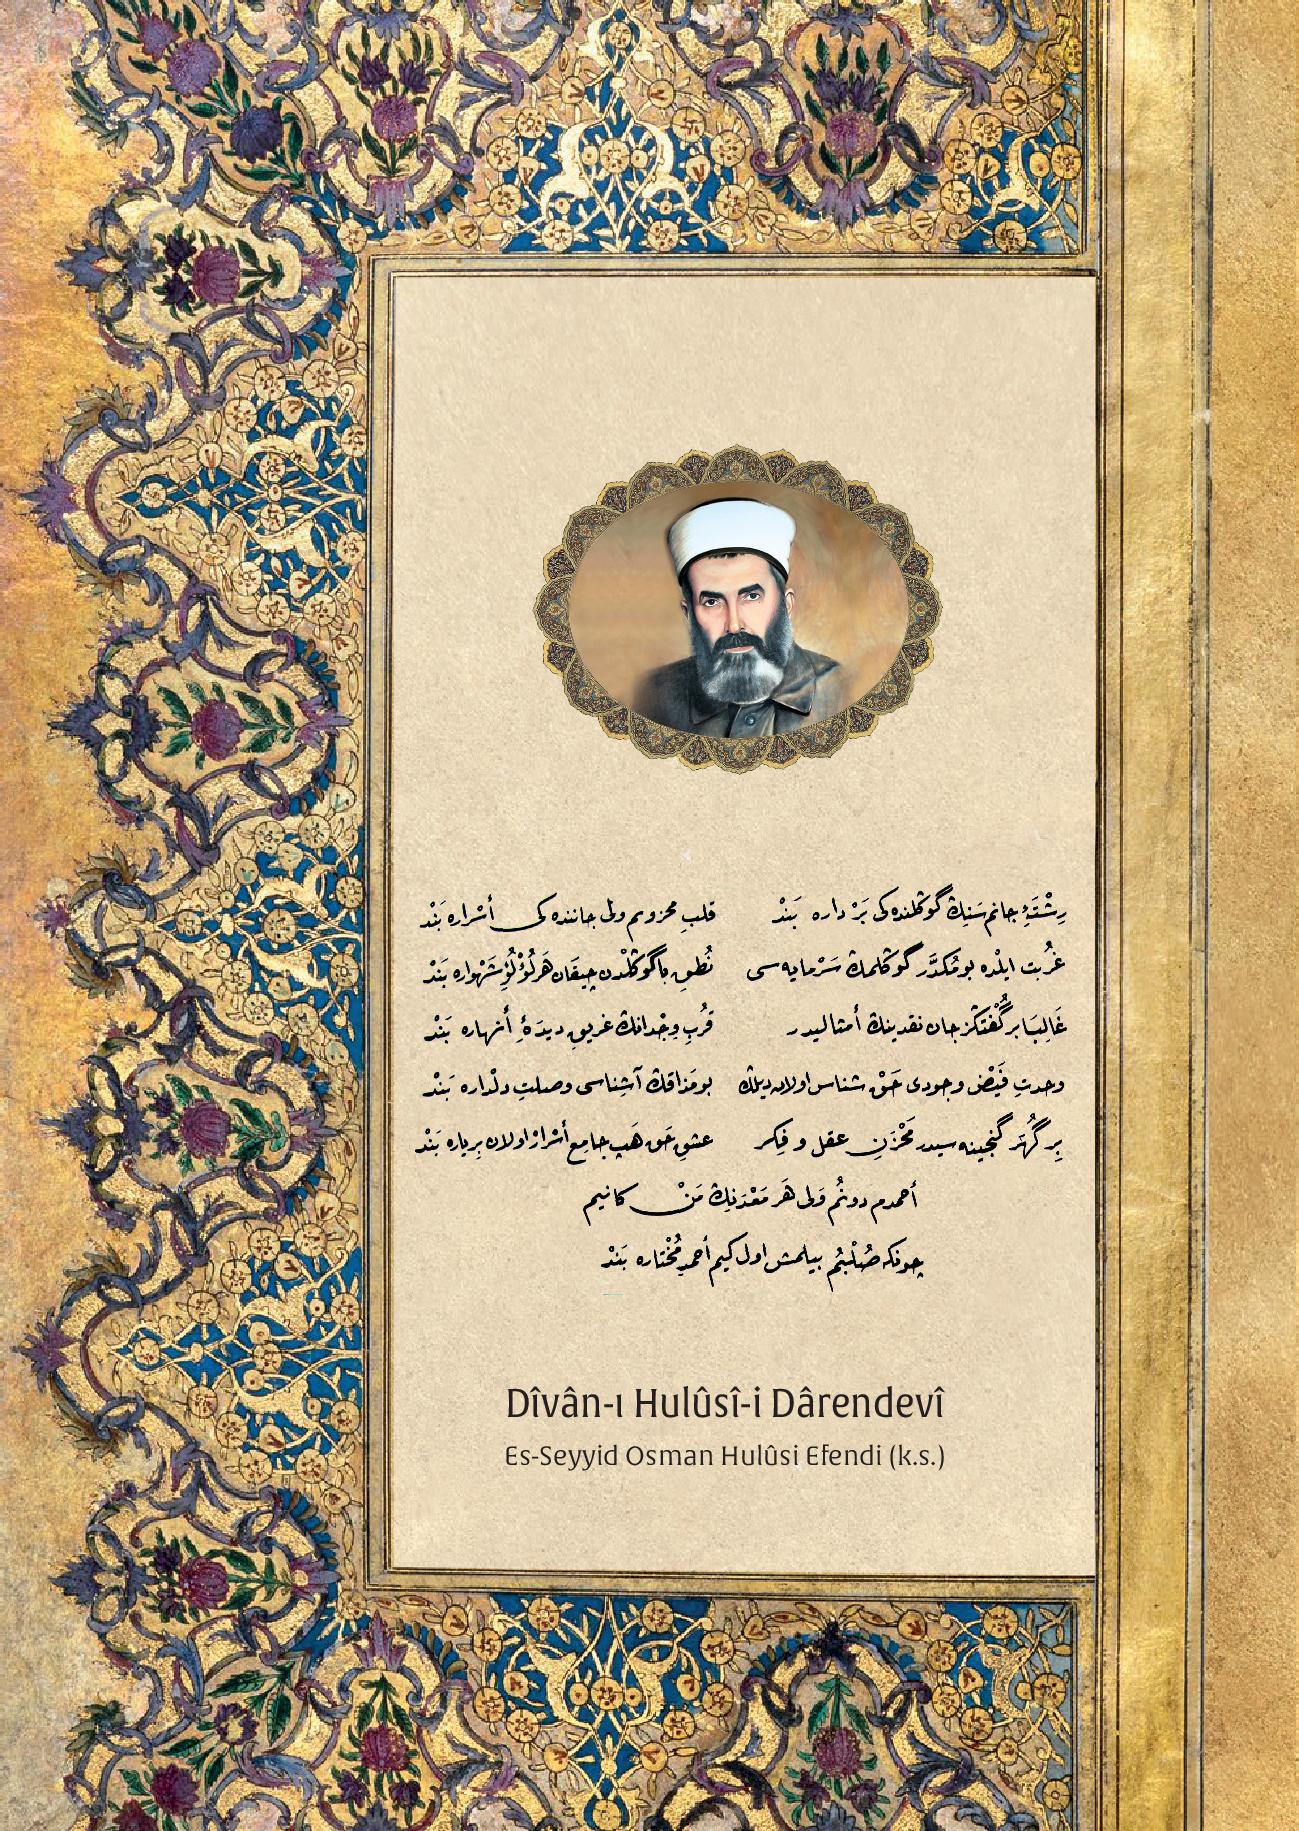 رِشْتَۀِ جانم سَنِڭ گوڭلنده كی بَرْ داره بَنْد قلبِ محزونم ولی جاننده كی أسْراره بَنْد
غُرْبت ایلْده بو مُكدَّر گوڭلمڭ سَرْمایه سی نُطقِ پاڭ گوڭلْدن چیقان هَر لُؤْلُؤِ شَهْواره بَنْد
غَالِبَا بر گُفْتڭز جان نقدینڭ أمثالیدر قُربِ وِجْدانڭ غریقِ دیدَۀِ أنهاره بَنْد
وحدتِ فَیْضِ وجودی حَقْ شناس اولان دیلڭ بو مَذاقڭ آشِناسی وصلتِ دلْداره بَنْد
بِر گُهَر گنجینه سیدر مَخْزَنِ عقل و فِكر عشقِ حَق هَپ جامِع أسْرار اولان بر یاره بَنْد
أحمدم دونُم وَلی هَر مَعْدَنِڭ مَنْ كانیم
چونكه صُلْبُم بیلمش اول كیم أحمدِ مُخْتاره بَنْد
Dîvân-ı Hulûsî-i Dârendevî
Es-Seyyid Osman Hulûsi Efendi (k.s.)